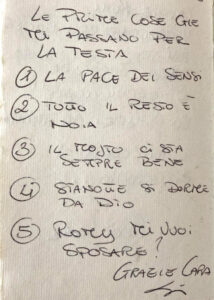 LE PRIME COSE CHE
MI PASSANO PER
LA TESTA
1 LA PACE DEI SENSI
2 TUTTO IL RESTO È
NOIA
3 IL MOJITO CI STA
SEMPRE BENE
4 STANOTTE SI DORME
DA DIO
5 ROMY MI VUOI
SPOSARE?
GRAZIE CARA